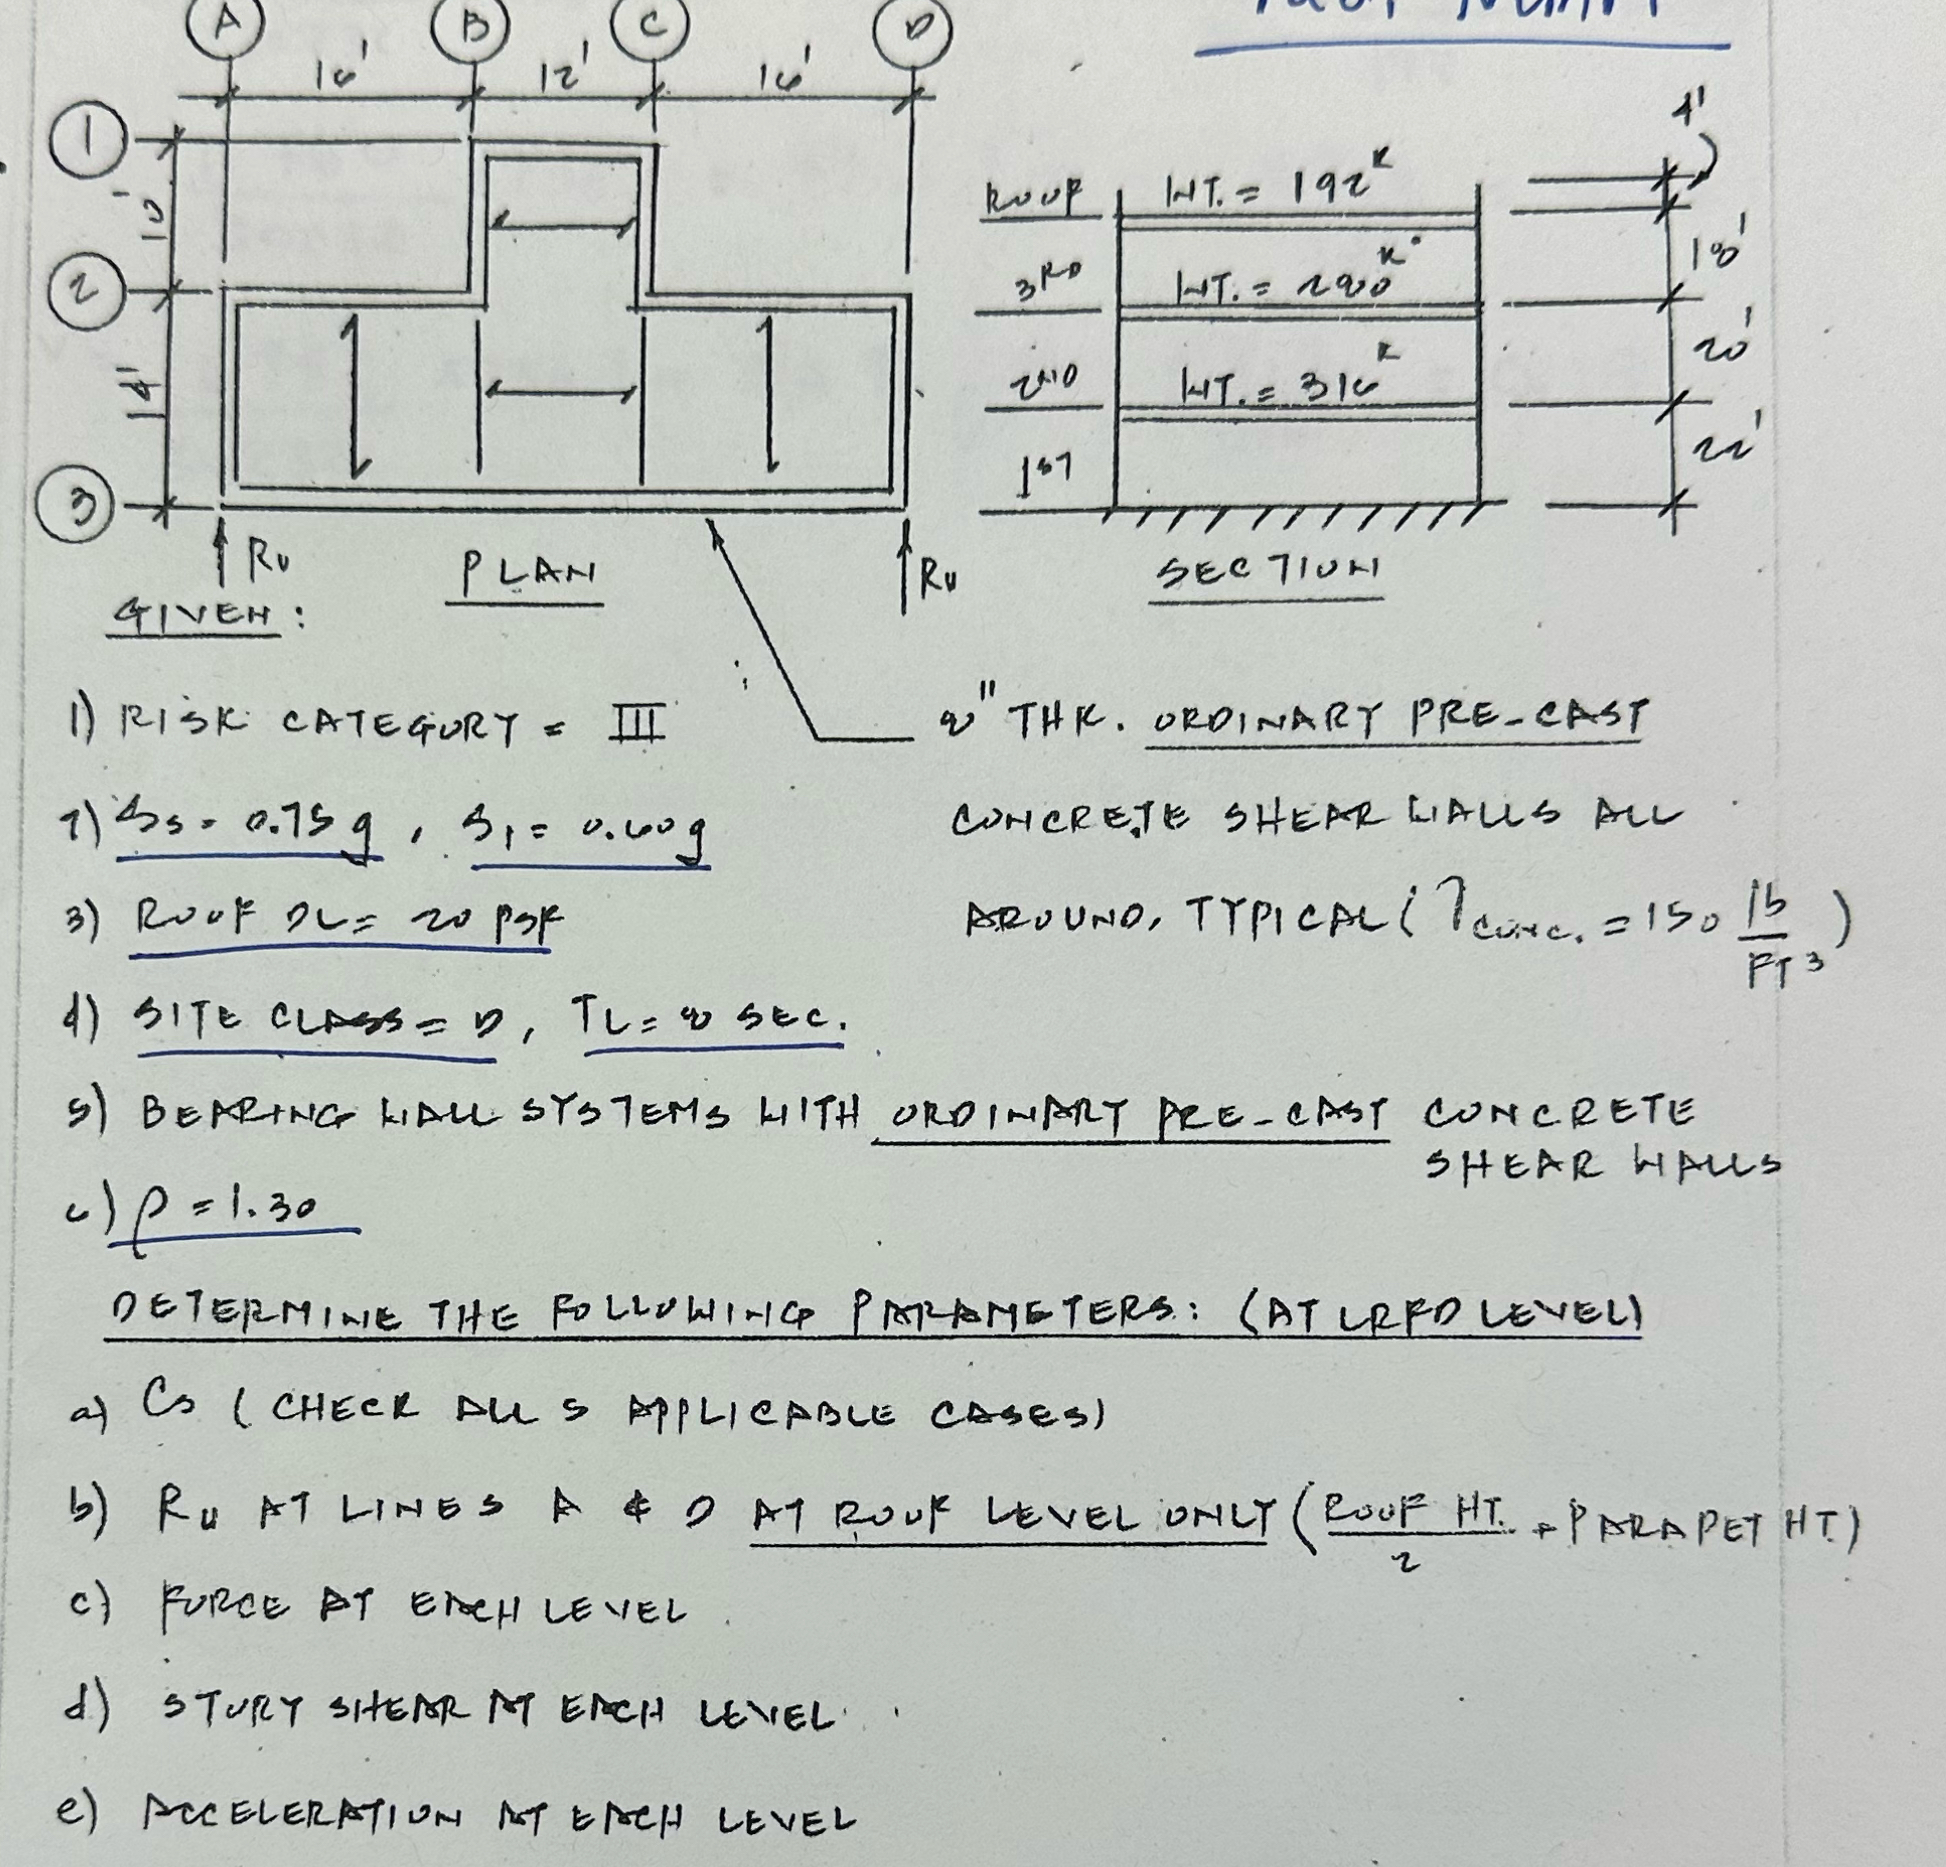 A B C D
16' 12' 16'
1
10'
2
14'
3
Ru PLAN Ru
4'
ROOF WT. = 192ᴷ
18'
3RD WT. = 280ᴷ
20'
2ND WT. = 316ᴷ
22'
1ST
SECTION
GIVEN:
1) RISK CATEGORY = III
2) Ss = 0.75g, S1 = 0.60g
3) ROOF DL = 20 PSF
4) SITE CLASS = D, TL = 8 SEC.
5) BEARING WALL SYSTEMS WITH ORDINARY PRE-CAST CONCRETE
SHEAR WALLS
6) ρ = 1.30
8" THK. ORDINARY PRE-CAST
CONCRETE SHEAR WALLS ALL
AROUND, TYPICAL (γconc. = 150 lb/FT³)
DETERMINE THE FOLLOWING PARAMETERS: (AT LRFD LEVEL)
a) Cs (CHECK ALL 5 APPLICABLE CASES)
b) Ru AT LINES A & D AT ROOF LEVEL ONLY (ROOF HT./2 + PARAPET HT.)
c) FORCE AT EACH LEVEL
d) STORY SHEAR AT EACH LEVEL
e) ACCELERATION AT EACH LEVEL